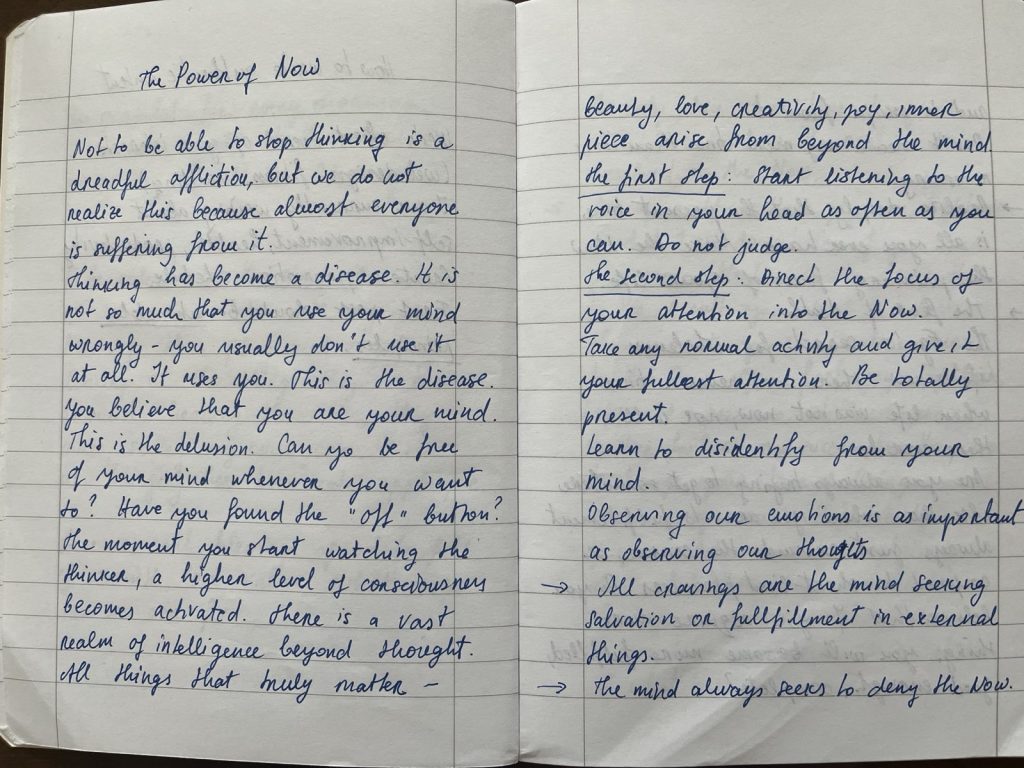 The Power of Now
Not to be able to stop thinking is a
dreadful affliction, but we do not
realize this because almost everyone
is suffering from it.
Thinking has become a disease. It is
not so much that you use your mind
wrongly - you usually don't use it
at all. It uses you. This is the disease.
You believe that you are your mind.
This is the delusion. Can yo be free
of your mind whenever you want
to? Have you found the "off" button?
The moment you start watching the
thinker, a higher level of consciousness
becomes activated. There is a vast
realm of intelligence beyond thought.
All things that truly matter -
beauty, love, creativity, joy, inner
piece arise from beyond the mind
The first step: Start listening to the
voice in your head as often as you
can. Do not judge.
The second step: Direct the focus of
your attention into the Now.
Take any normal activity and give it
your fullest attention. Be totally
present.
Learn to disidentify from your
mind.
Observing our emotions is as important
as observing our thoughts
→ All cravings are the mind seeking
salvation or fullfillment in external
things.
→ The mind always seeks to deny the Now.